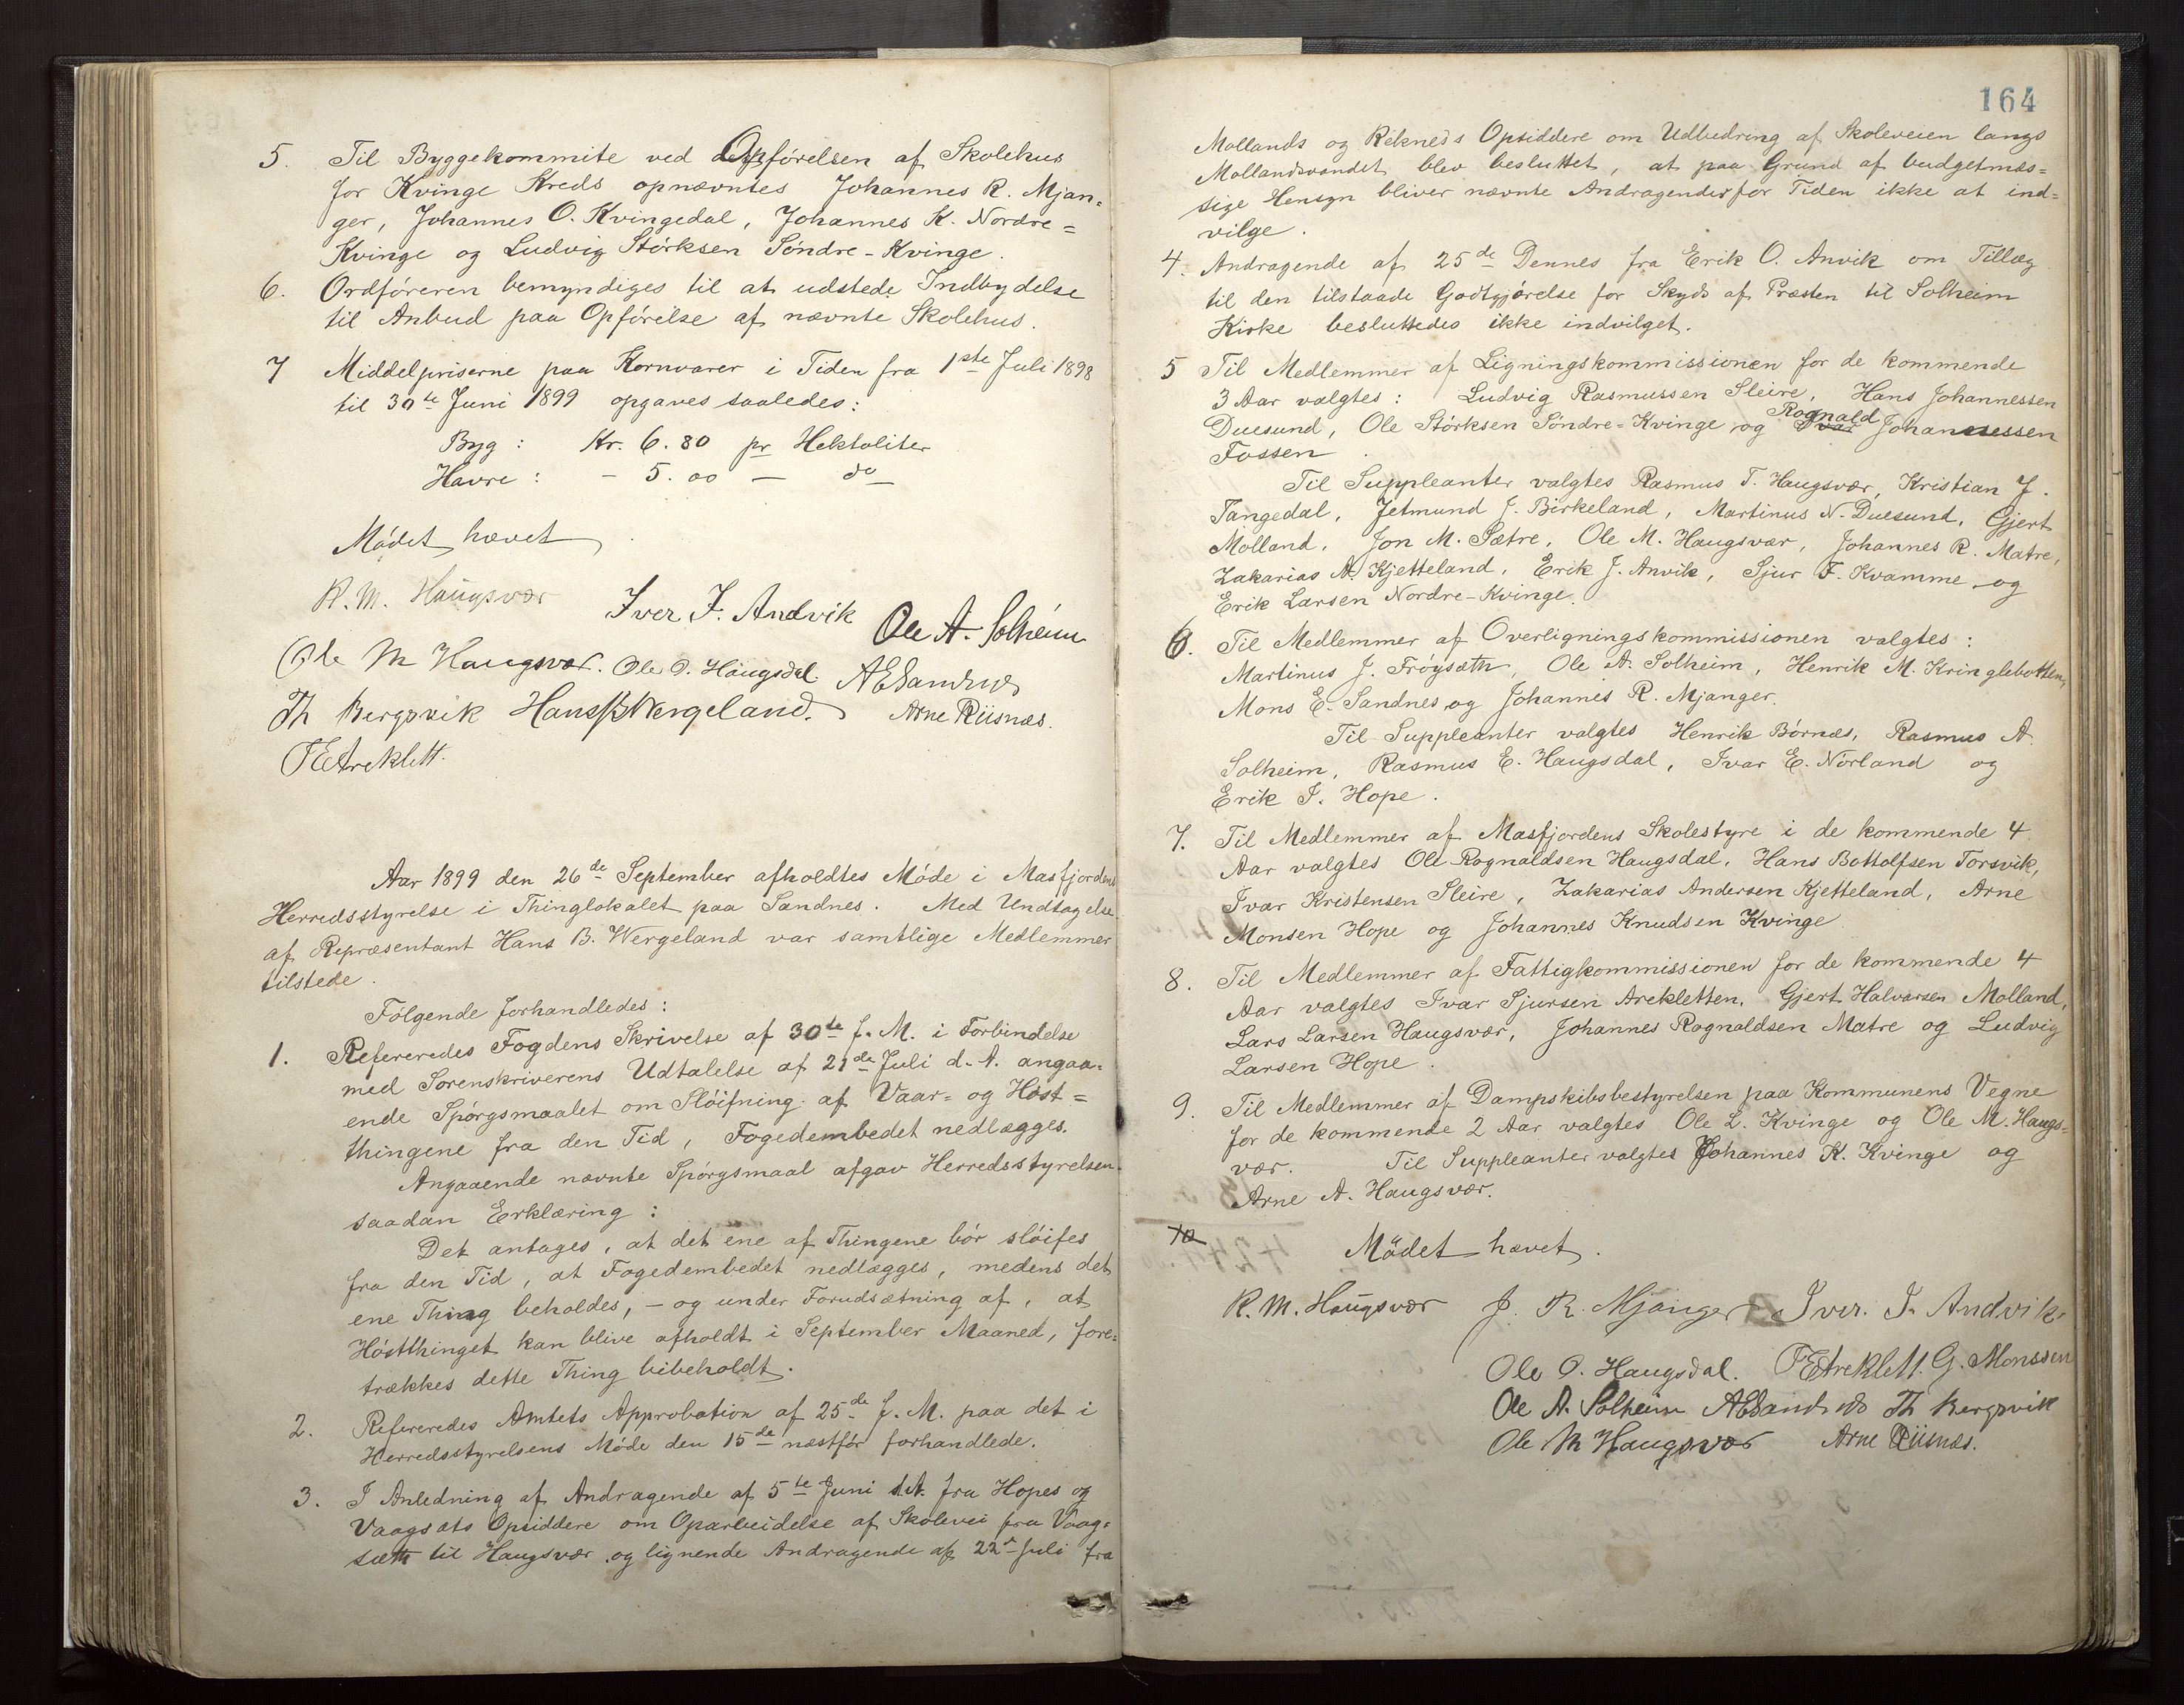 5. Til Byggekommite ved Opførelsen af Skolehus
for Kvinge Kreds opnævntes Johannes R. Mjan-
ger, Johannes O. Kvingedal, Johannes K. Nordre-
Kvinge og Ludvig Størksen Søndre-Kvinge.
6. Ordføreren bemyndiges til at udstede Indbydelse
til Anbud paa Opførelse af nævnte Skolehus.
7 Middelpriserne paa Kornvarer i Tiden fra 1ste Juli 1898
til 30te Juni 1899 opgaves saaledes:
Byg: Kr. 6.80 pr Hektoliter
Havre: - 5.00 — do
Mødet hævet
R. M. Haugsvær Iver I. Andvik Ole A. Solheim
Ole M Haugsvær. Ole O. Haugsdal. AESandnes
Th Bergsvik Hans B Wergeland. Arne Riisnæs.
Aar 1899 den 26de September afholdtes Møde i Masfjordens
Herredsstyrelse i Thinglokalet paa Sandnes. Med Undtagelse
af Repræsentant Hans B. Wergeland var samtlige Medlemmer
tilstede.
Følgende forhandledes:
1. Refereredes Fogdens Skrivelse af 30te f. M. i Forbindelse
med Sorenskriverens Udtalelse af 21de Juli d. A. angaa-
ende Spørgsmaalet om Sløifning af Vaar- og Høst-
thingene fra den Tid, Fogedembedet nedlægges.
Angaaende nævnte Spørgsmaal afgav Herredsstyrelsen
saadan Erklæring:
Det antages, at det ene af Thingene bør sløifes
fra den Tid, at Fogedembedet nedlægges, medens det
ene Thing beholdes, - og under Forudsætning af, at
Høstthinget kan blive afholdt i September Maaned, fore-
trækkes dette Thing bibeholdt.
2. Refereredes Amtets Approbation af 25de f. M. paa det i
Herredsstyrelsens Møde den 15de næstfør forhandlede.
3. I Anledning af Andragende af 5te Juni d.A. fra Hopes og
Vaagsæts Opsiddere om Oparbeidelse af Skolevei fra Vaag-
sæth til Haugsvær og lignende Andragende af 22de Juli fra
164
Mollands og Reknes's Opsiddere om Udbedring af Skoleveien langs
Mollandsvandet blev besluttet, at paa Grund af budgetmæs-
sige Hensyn bliver nævnte Andragender for Tiden ikke at ind-
vilge.
4. Andragende af 25de Dennes fra Erik O. Anvik om Tillæg
til den tilstaade Godtgjørelse for Skyds af Præsten til Solheim
Kirke besluttedes ikke indvilget.
5 Til Medlemmer af Ligningskommissionen for de kommende
3 Aar valgtes: Ludvig Rasmussen Sleire, Hans Johannessen
Duesund, Ole Størksen Søndre-Kvinge og Rognald Johannessen
Fossen.
Til Suppleanter valgtes Rasmus T. Haugsvær, Kristian J.
Tangedal, Jetmund J. Birkeland, Martinus N. Duesund, Gjert
Molland, Jon M. Sætre, Ole M. Haugsvær, Johannes R. Matre,
Zakarias A. Kjetteland, Erik J. Anvik, Sjur F. Kvamme og
Erik Larsen Nordre-Kvinge.
6. Til Medlemmer af Overligningskommissionen valgtes:
Martinus J. Frøysæth, Ole A. Solheim, Henrik M. Kringlebotten,
Mons E. Sandnes og Johannes R. Mjanger.
Til Suppleanter valgtes Henrik Børnæs, Rasmus A.
Solheim, Rasmus E. Haugsdal, Ivar E. Norland og
Erik I. Hope.
7. Til Medlemmer af Masfjordens Skolestyre i de kommende 4
Aar valgtes Ole Rognaldsen Haugsdal, Hans Bottolfsen Torsvik,
Ivar Kristensen Sleire, Zakarias Andersen Kjetteland, Arne
Monsen Hope og Johannes Knudsen Kvinge
8. Til Medlemmer af Fattigkommissionen for de kommende 4
Aar valgtes Ivar Sjursen Arekletten, Gjert Halvorsen Molland,
Lars Larsen Haugsvær, Johannes Rognaldsen Matre og Ludvig
Larsen Hope.
9. Til Medlemmer af Dampskibsbestyrelsen paa Kommunens Vegne
for de kommende 2 Aar valgtes Ole L. Kvinge og Ole M. Haugs-
vær. Til Suppleanter valgtes Johannes K. Kvinge og
Arne A. Haugsvær.
10 Mødet hævet.
R. M. Haugsvær J. R. Mjanger Iver. I. Andvik
Ole O. Haugsdal. G. Monssen
Ole A. Solheim AESandnes Th Bergsvik
Ole M Haugsvær Arne Riisnæs.